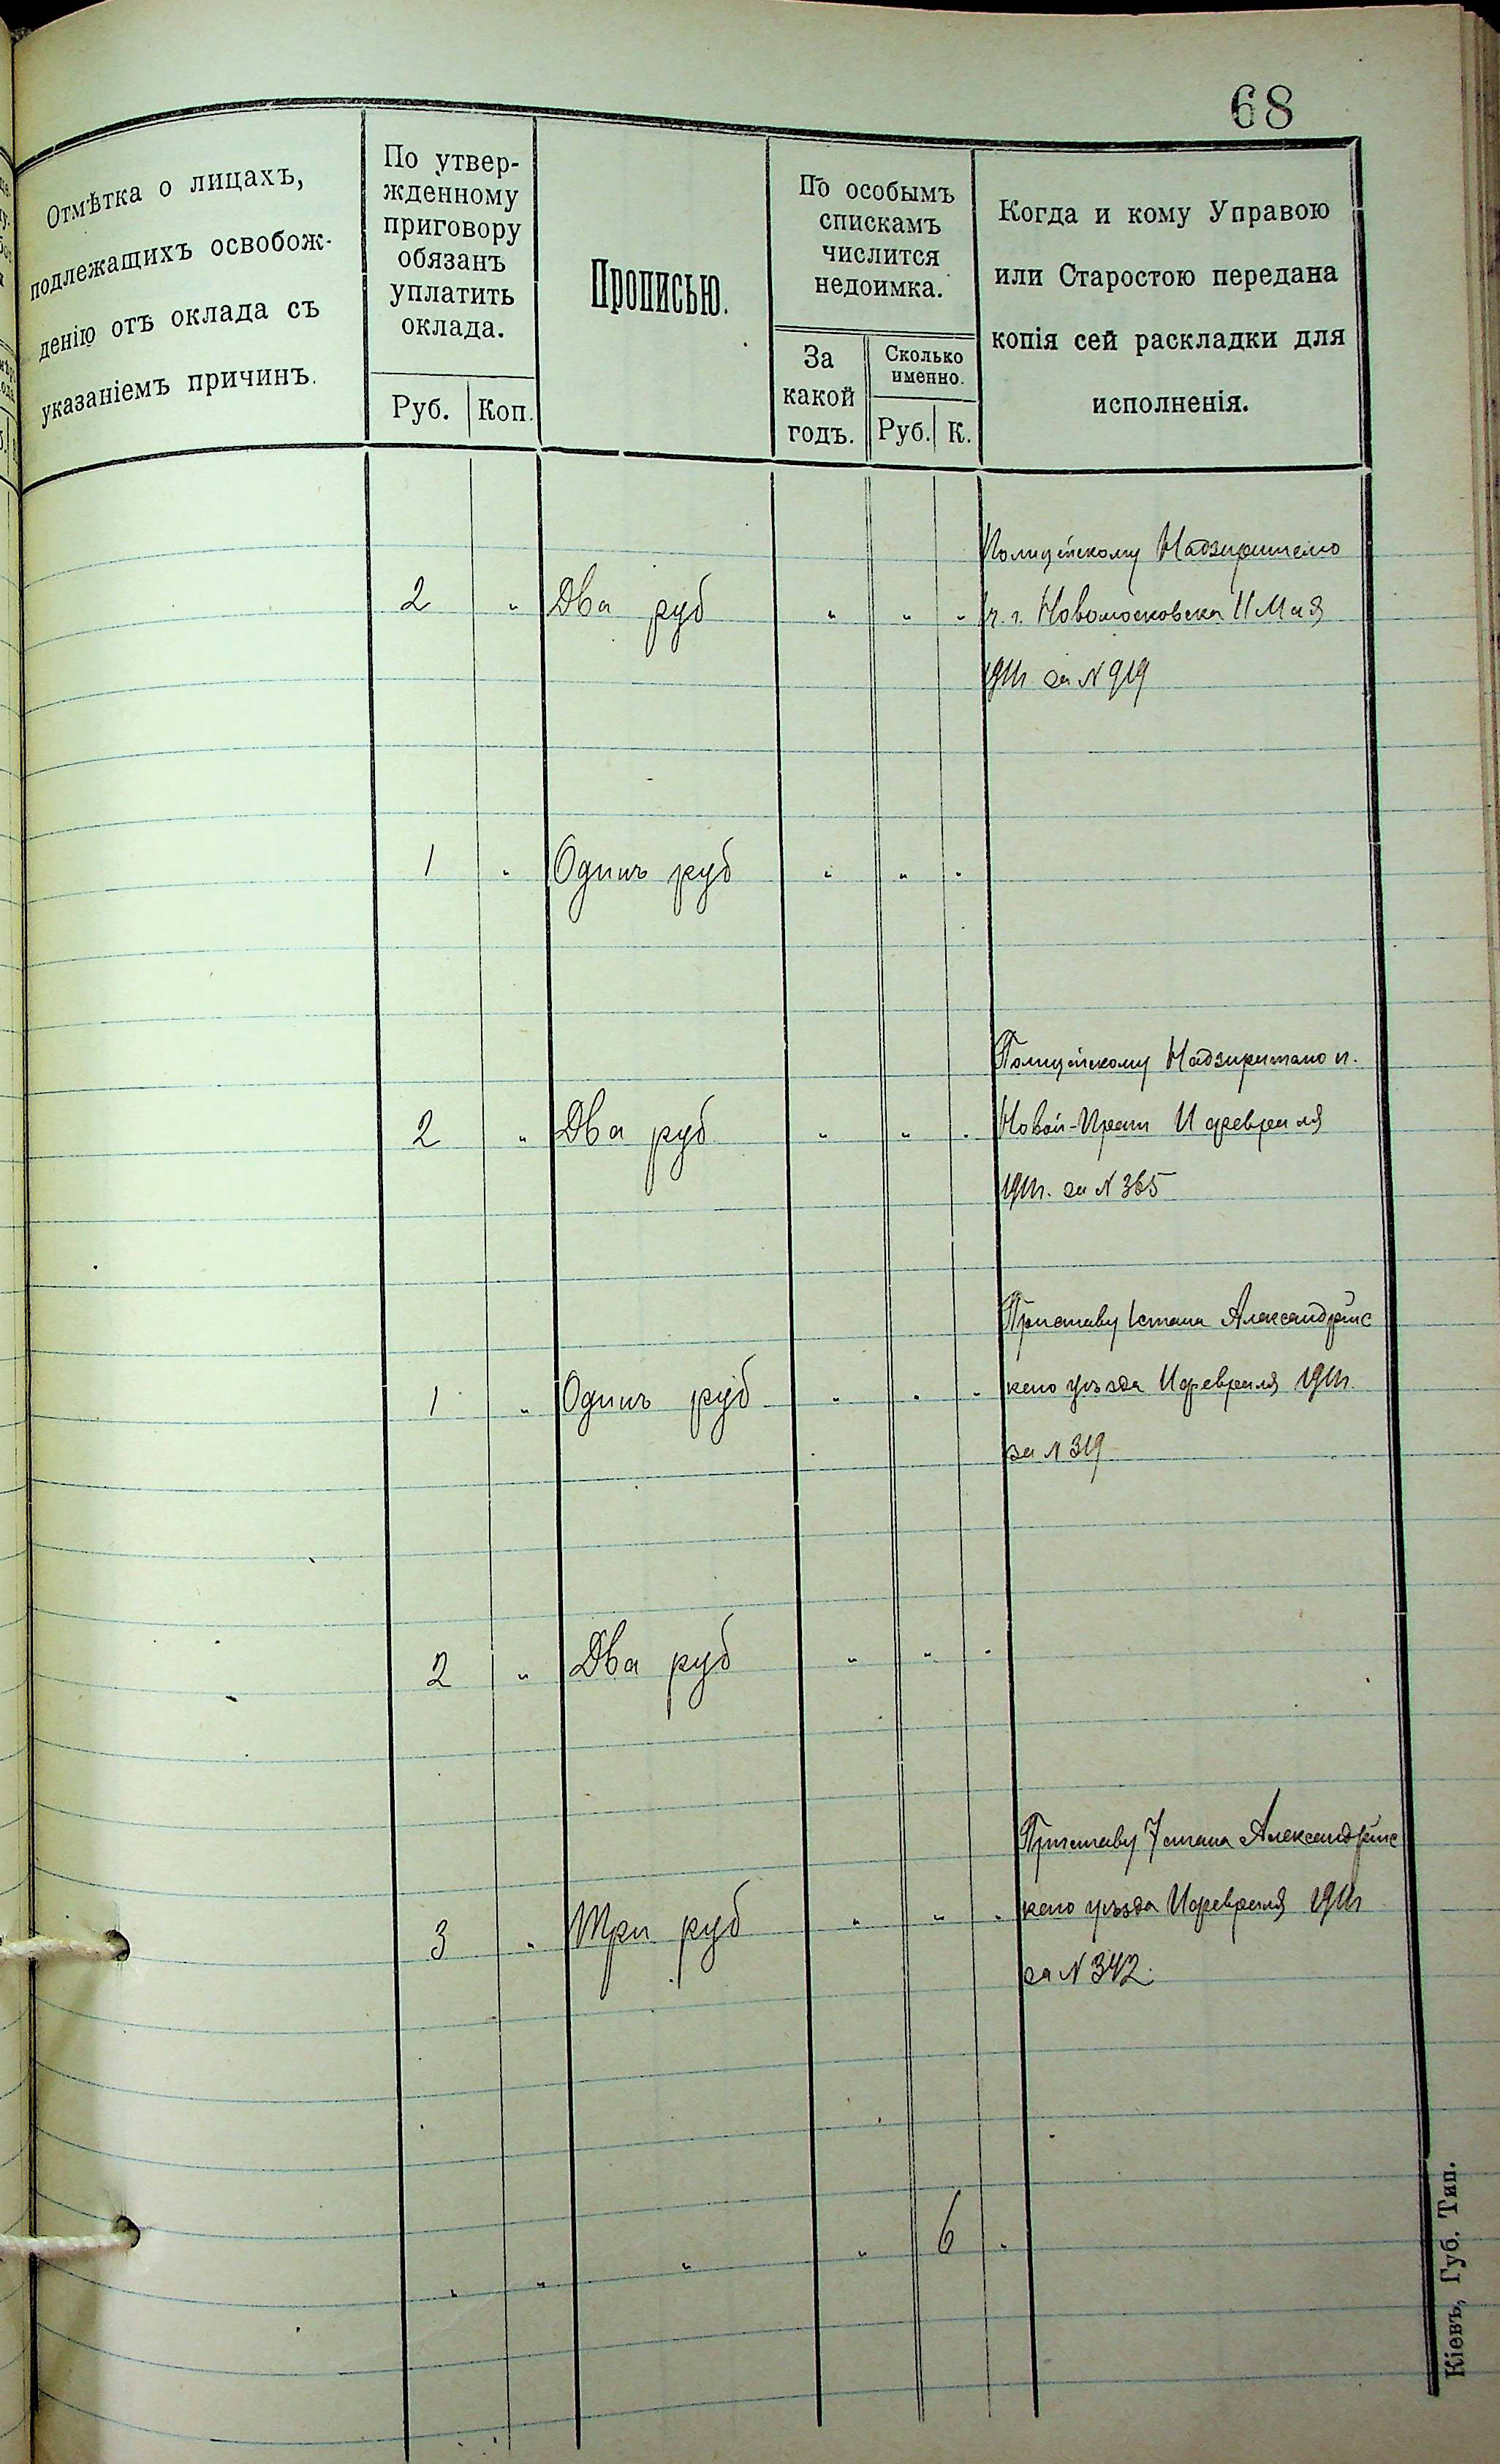 68
Отмѣтка о лицахъ,
подлежащихъ освобож-
денію отъ оклада съ
указаніемъ причинъ.
По утвер-
жденному
приговору
обязанъ
уплатить
оклада.
Руб. Коп.
Прописью.
По особымъ
спискамъ
числится
недоимка.
За
какой
годъ.
Сколько
именно.
Руб. К.
Когда и кому Управою
или Старостою передана
копія сей раскладки для
исполненія.
Полицейскому Надзирателю
2 " Два руб " " " г. Новомосковска 11 Мая
1911г за N 919
1 " Одинъ руб " " "
Полицейскому Надзирателю п.
2 " Два руб " " " Новой-Праги 11 февраля
1911г. за N 365
Приставу 1 стана Александрійс
1 " Одинъ руб " " " каго уѣзда 11 февраля 1911г.
за N 319
2 " Два руб " " "
Приставу 7 стана Александрійс
3 " Три руб " " " каго уѣзда 11 февраля 1911г
за N 342.
" " " " 6 "
Кіевъ, Губ. Тип.